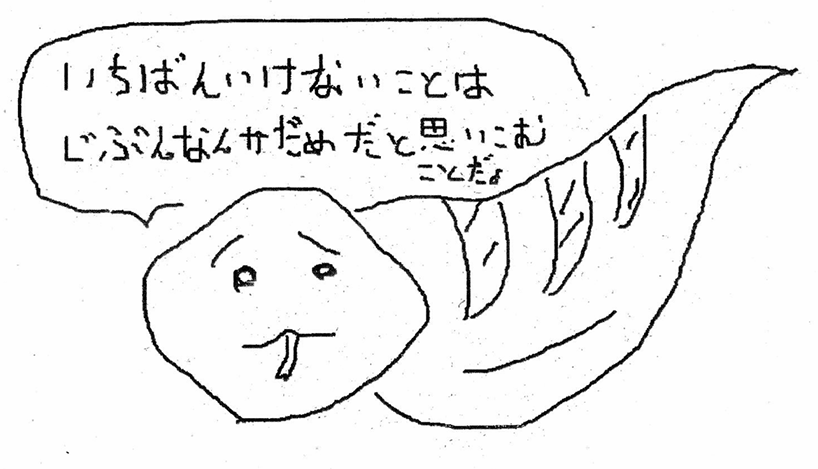 いちばんいけないことは
じぶんなんかだめだと思いこむ
ことだよ